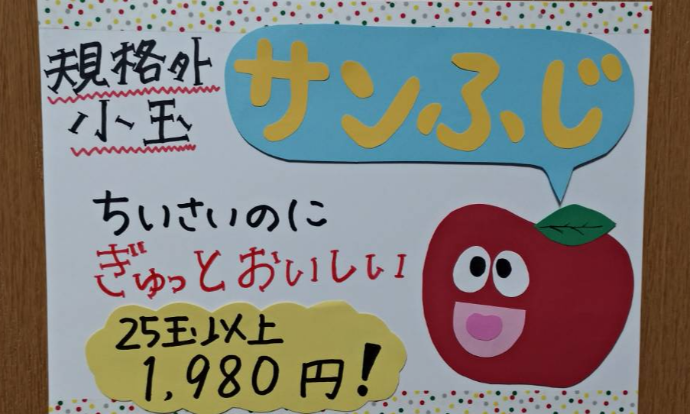 規格外
小玉
サンふじ
ちいさいのに
ぎゅっとおいしい
25玉以上
1,980円!